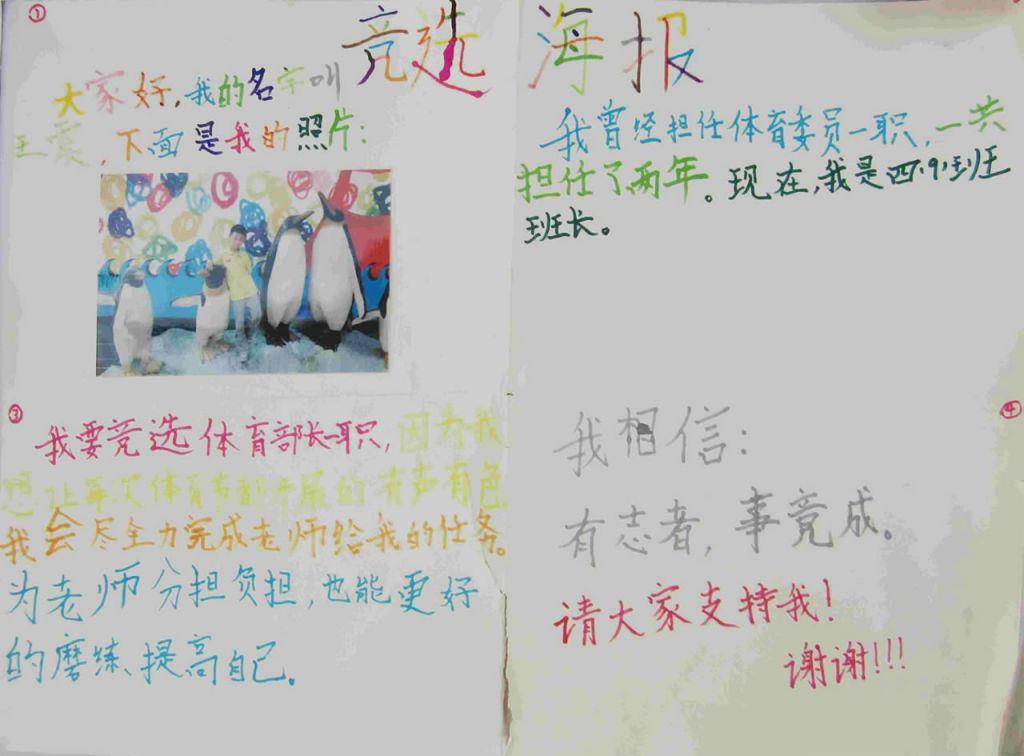 竞选海报
①
大家好,我的名字叫
王震,下面是我的照片:
我曾经担任体育委员一职,一共
担任了两年。现在,我是四·9班班
班长。
③
我要竞选体育部长一职,因为我
想让每次体育节都开展的有声有色
我会尽全力完成老师给我的任务。
为老师分担负担,也能更好
的磨练、提高自己。
④
我相信:
有志者,事竟成。
请大家支持我!
谢谢!!!